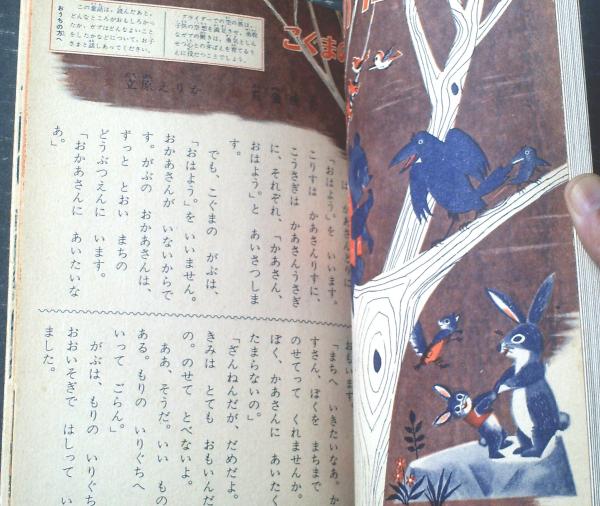 おうちの方へ
この童話は、読んだあと、
どんなところがおもしろかっ
たか、ガブはどんなよいこと
をしたかなどについて、お子
さまと話しあってください。
グライダーでの空の旅は、
子供の空想を満足させ、勇敢
なガブの働きは、勇気としん
せつ心との芽ばえを育てるう
えに役だつことでしょう。
こぐまの
立原えりか
「おはよう。」を いいます。
こりすは かあさんりすに、
こうさぎは かあさんうさぎ
に、それぞれ、「かあさん、
おはよう。」と あいさつしま
す。
でも、こぐまの がぶは、
「おはよう。」を いいません。
おかあさんが いないからで
す。がぶの おかあさんは、
ずっと とおい まちの
どうぶつえんに います。
「おかあさんに あいたいな
あ。」
おもいます。
「まちへ いきたいなあ。か
すさん、ぼくを まちまで
のせてって くれませんか。
ぼく、かあさんに あいたく
たまらないの。」
「ざんねんだが、だめだよ。
きみは とても おもいんだ
の。のせて とべないよ。
ああ、そうだ。いい もの
ある。もりの いりぐちへ
いって ごらん。」
がぶは、もりの いりぐち
おおいそぎで はしって い
ました。